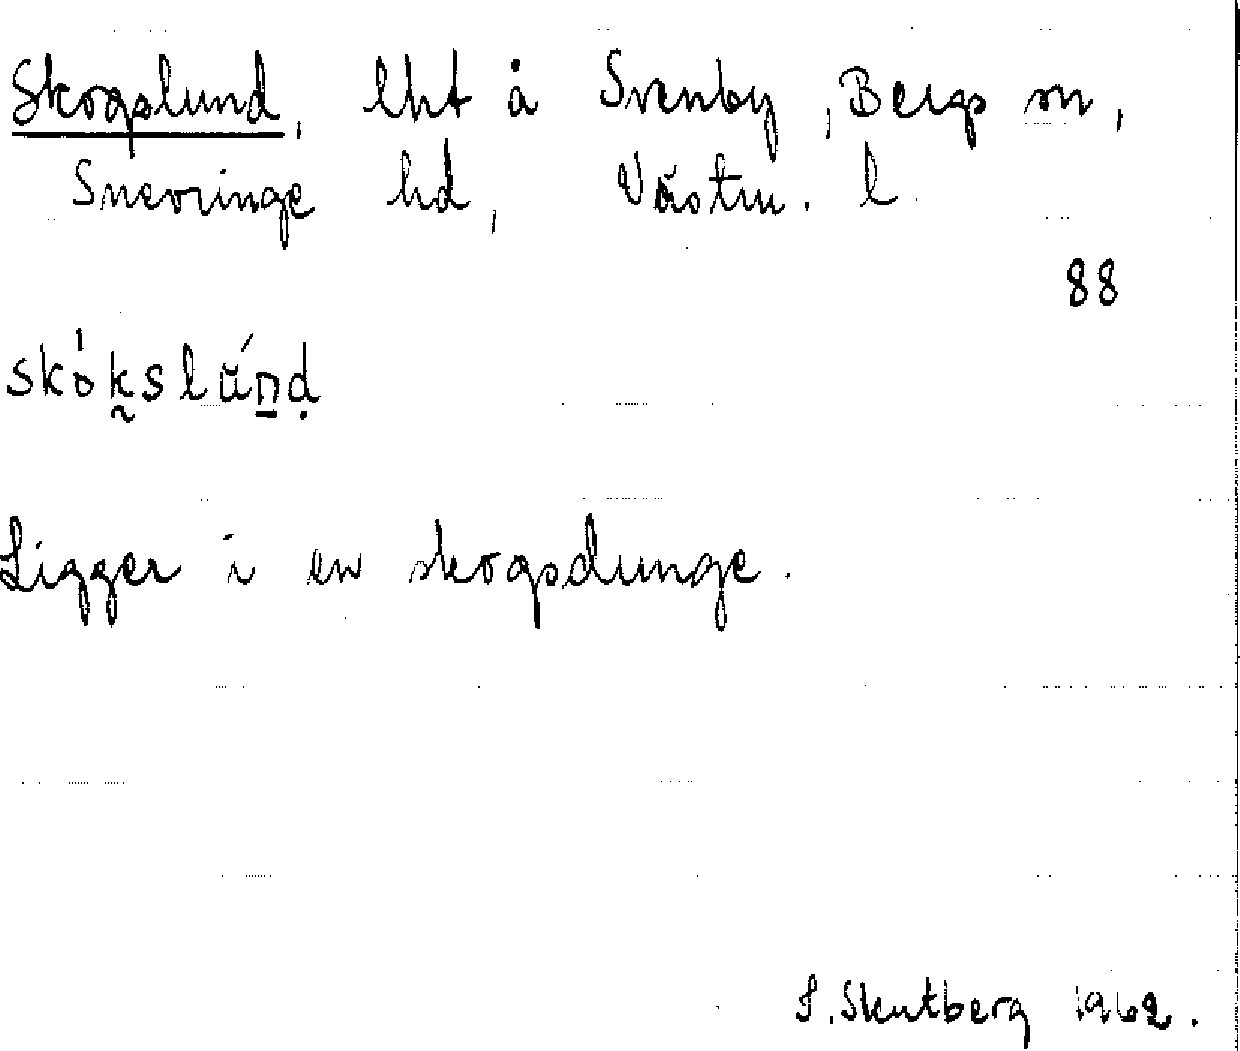 Skogslund, lht å Svenby, Bergs sn,
Snevringe hd, Västm. l.
88
skó̀k̰slǘn̲ḍ
Ligger i en skogsdunge.
S. Skutberg 1962.